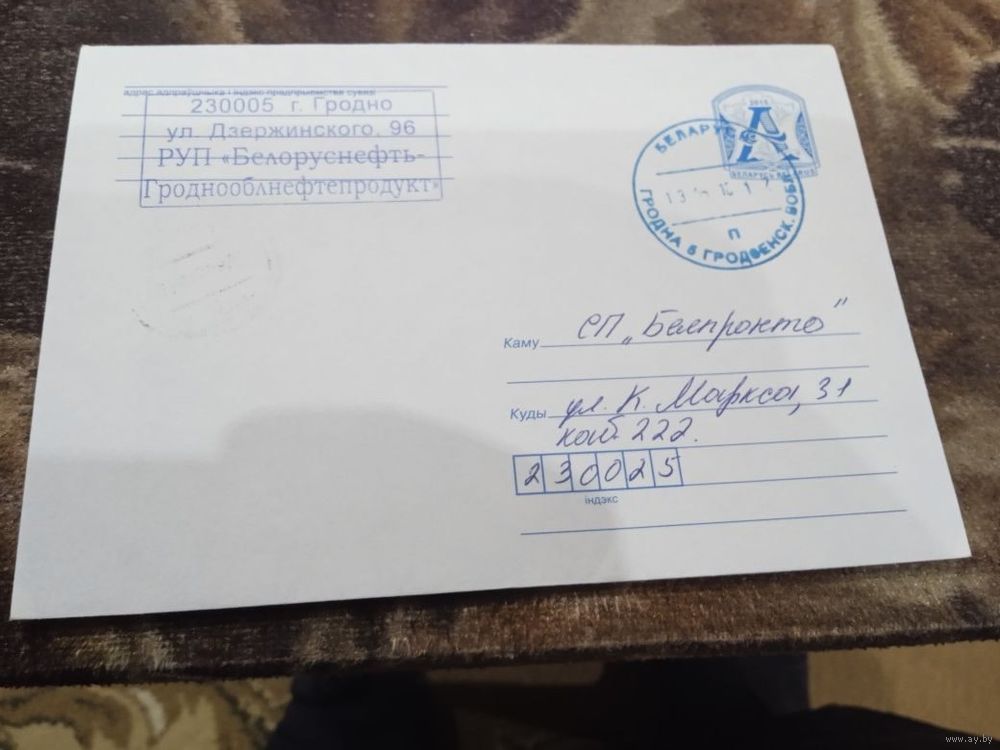 адрас адпраўшчыка і індэкс прадпрыемства сувязі
230005 г. Гродно
ул. Дзержинского, 96
РУП «Белоруснефть-
Гроднооблнефтепродукт»
2015
А
БЕЛАРУСЬ BELARUS
БЕЛАРУСЬ
ГРОДНА 5 ГРОДЗЕНСК. ВОБЛ.
П
Каму СП „Белпронто"
Куды ул. К. Маркса, 31
каб. 222.
230025
індэкс
www.ay.by